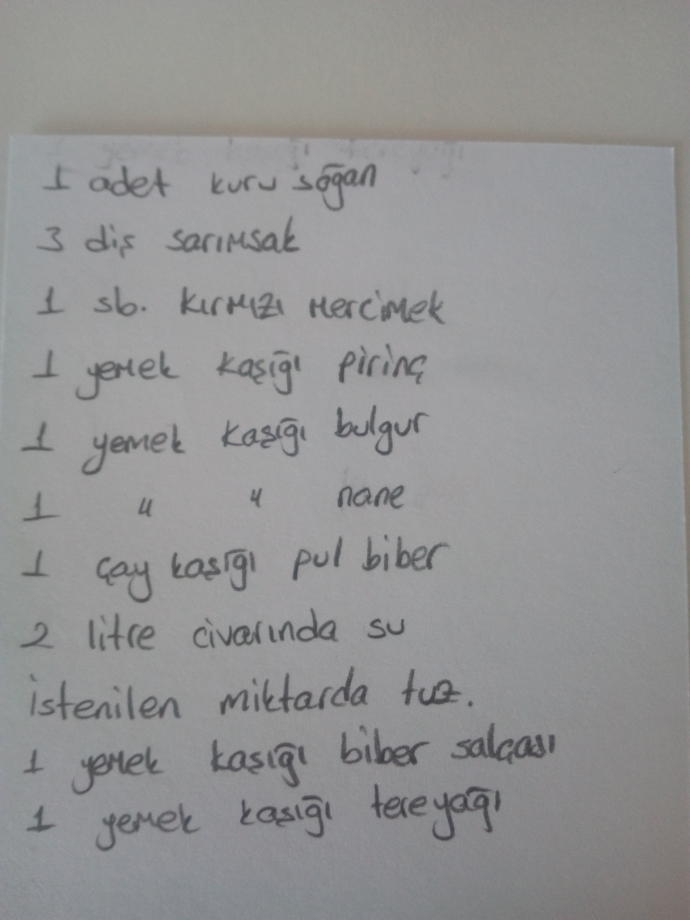 1 adet kuru soğan
3 diş sarımsak
1 sb. kırmızı mercimek
1 yemek kaşığı pirinç
1 yemek kaşığı bulgur
1 " " nane
1 çay kaşığı pul biber
2 litre civarında su
istenilen miktarda tuz.
1 yemek kaşığı biber salçası
1 yemek kaşığı tereyağı